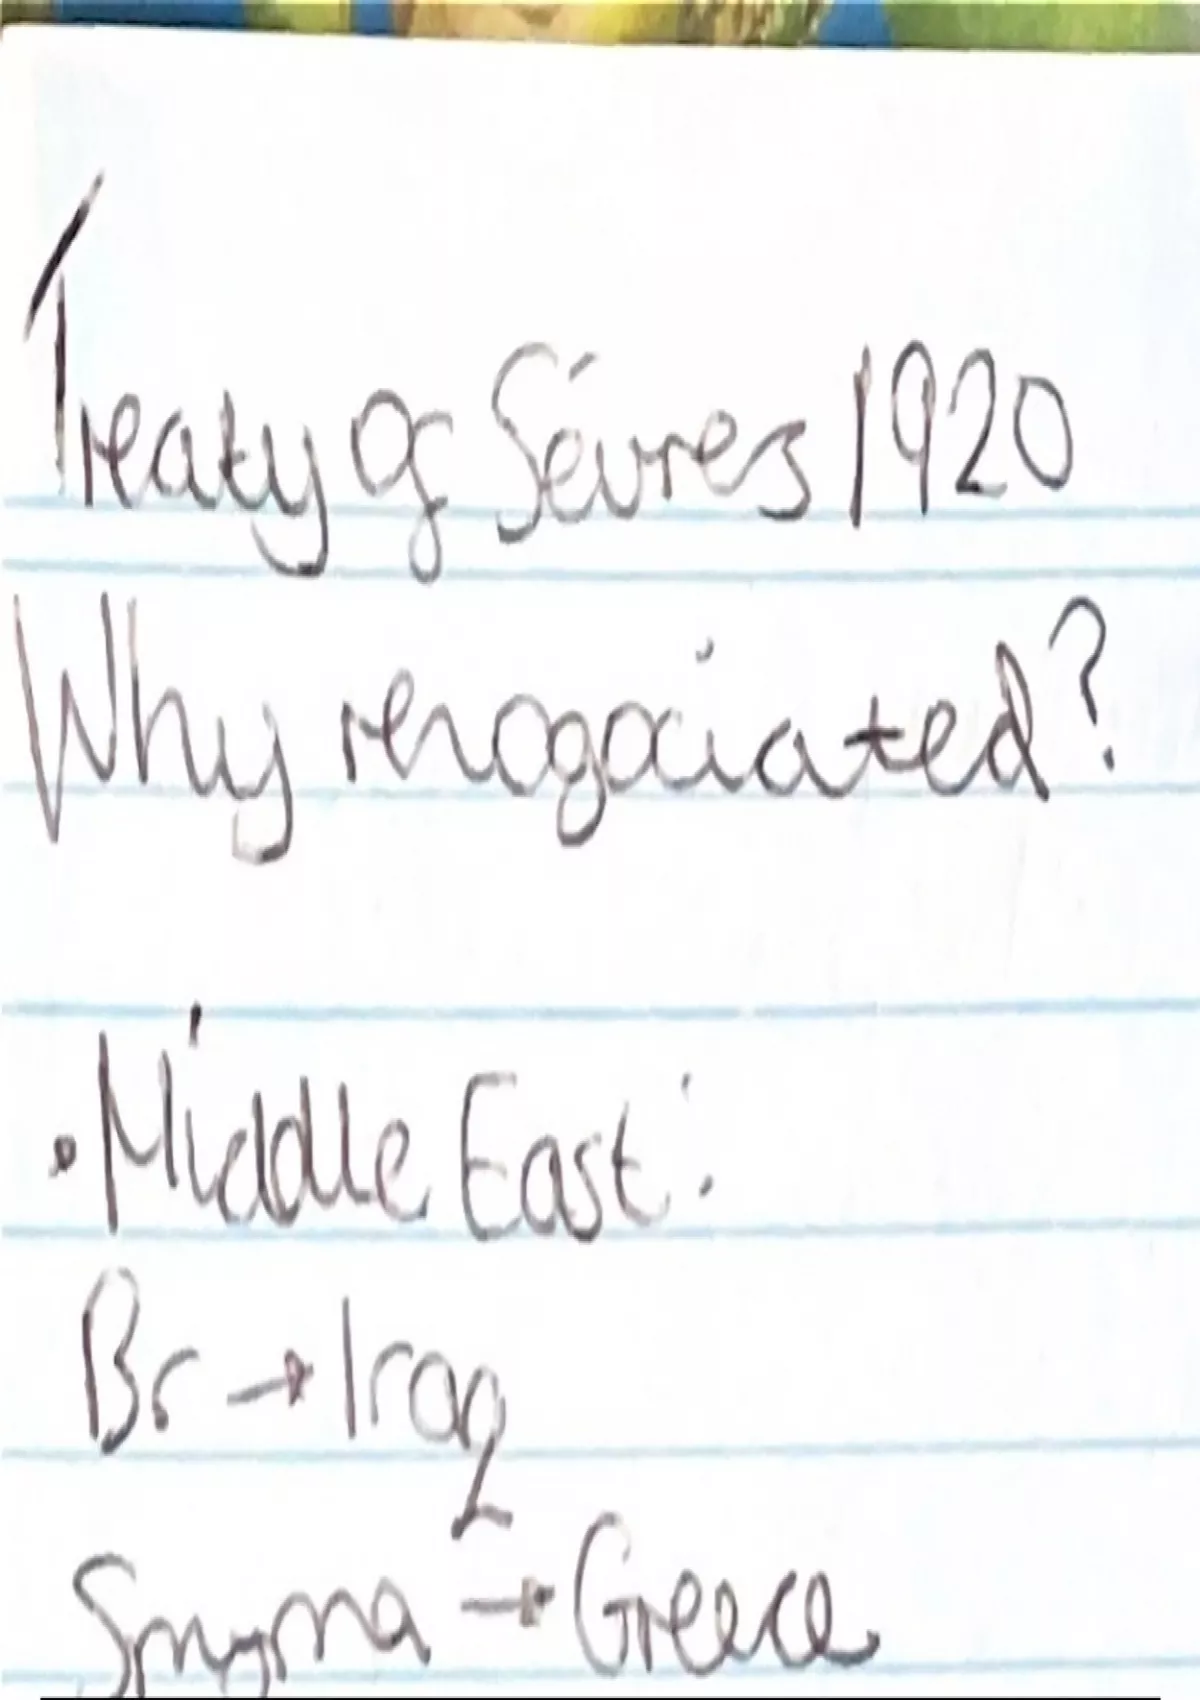 Treaty of Sévres 1920
Why renogociated?
• Middle East:
Br → Iraq
Smyrna → Greece